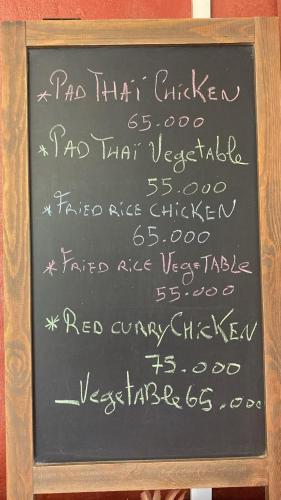 *PAD THAÏ CHICKEN
65.000
*PAD THAÏ VegeTable
55.000
*FRIED RICE CHICKEN
65.000
*FRIED RICE VegeTABLe
55.000
*RED CURRY CHICKEN
75.000
_VegeTABle 65.000